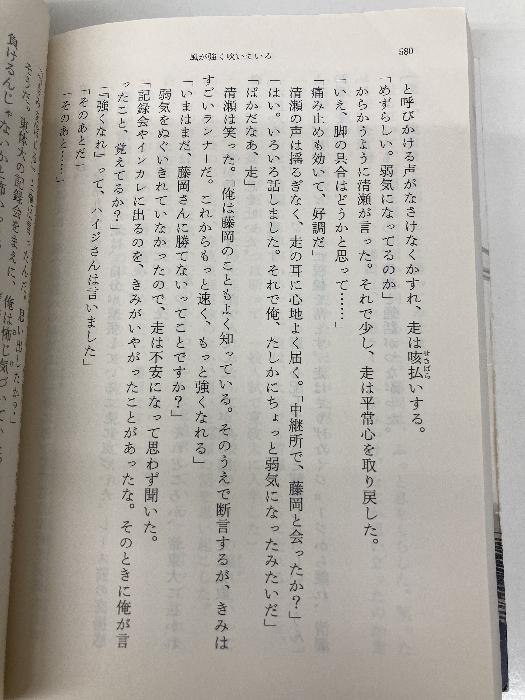 580
風が強く吹いている
」と呼びかける声がなさけなくかすれ、走は咳払いする。
せきばら
「めずらしい。弱気になってるのか」
からかうように清瀬が言った。それで少し、走は平常心を取り戻した。
「いえ、脚の具合はどうかと思って……」
「痛み止めも効いて、好調だ」
清瀬の声は揺るぎなく、走の耳に心地よく届く。「中継所で、藤岡と会ったか?」
「はい。いろいろ話しました。それで俺、たしかにちょっと弱気になったみたいだ」
「ばかだなあ、走」
清瀬は笑った。「俺は藤岡のこともよく知っている。そのうえで断言するが、きみは
すごいランナーだ。これからもっと速く、もっと強くなれる」
「いまはまだ、藤岡さんに勝てないってことですか?」
弱気をぬぐいきれていなかったので、走は不安になって思わず聞いた。
「記録会やインカレに出るのを、きみがいやがったことがあったな。そのときに俺が言
ったこと、覚えてるか?」
「『強くなれ』って、ハイジさんは言いました」
「そのあとだ」
「そのあと……」
思い出したか?」
そうだ、東体大の記録会をまえに、俺は怖じ気づいて
負けるんじゃないかと怖